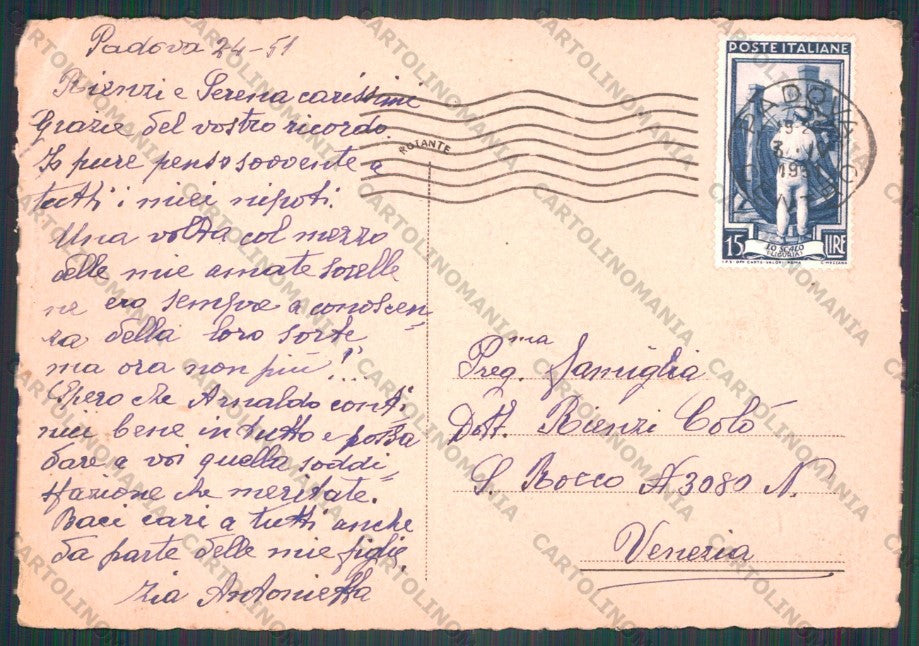 Padova 24-51
Rienzi e Serena carissime
Grazie del vostro ricordo.
Io pure penso sovvente a
tutti i miei nipoti.
Una volta col mezzo
delle mie amate sorelle
ne ero sempre a conoscen-
za della loro sorte
ma ora non più!...
Spero che Arnaldo conti-
nui bene in tutto e possa
dare a voi quella soddi-
sfazione che meritate.
Baci cari a tutti anche
da parte delle mie figlie.
Zia Antonietta
ROTANTE
POSTE ITALIANE
PADOVA
15 LIRE
LO SCALO
(LIGURIA)
Preg.ma famiglia
Dott. Rienzi Colò
S. Rocco A3080 N.
Venezia
CARTOLINOMANIA